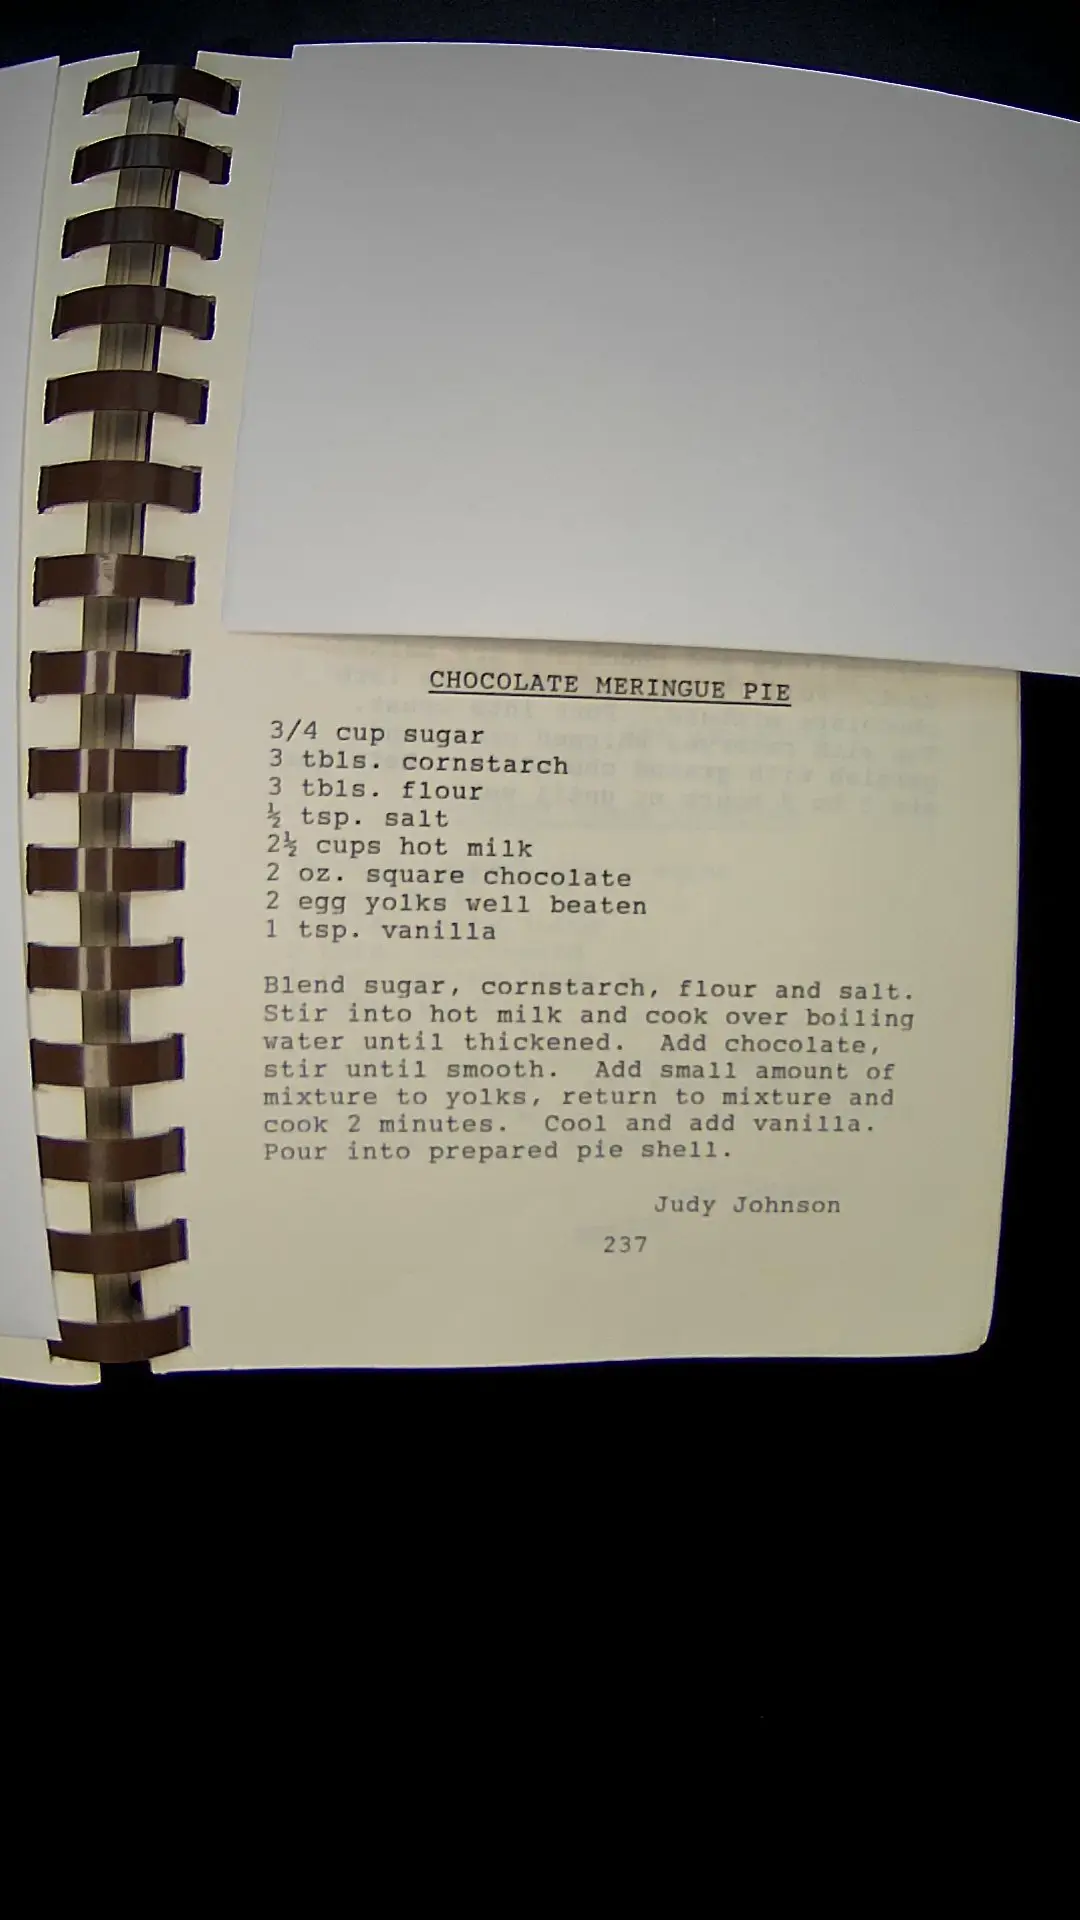 CHOCOLATE MERINGUE PIE
3/4 cup sugar
3 tbls. cornstarch
3 tbls. flour
½ tsp. salt
2½ cups hot milk
2 oz. square chocolate
2 egg yolks well beaten
1 tsp. vanilla
Blend sugar, cornstarch, flour and salt.
Stir into hot milk and cook over boiling
water until thickened. Add chocolate,
stir until smooth. Add small amount of
mixture to yolks, return to mixture and
cook 2 minutes. Cool and add vanilla.
Pour into prepared pie shell.
Judy Johnson
237